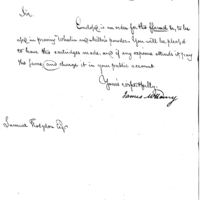 Sir
Enclos'd is an order for the flannel &c, to be
used in proving Whelen and Miller's powder. You will be pleas'd
to have the cartridges made, and if any expense attends it, pay
the same, and charge it in your public account.
Yours respectfully,
James McHenry
Samuel Hodgdon Esqr